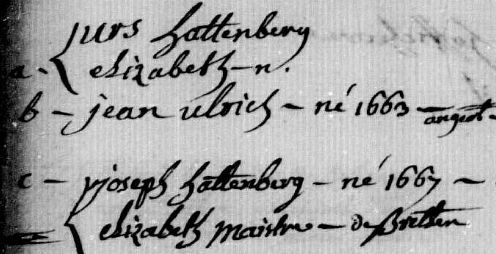 jurs hattenberg
a - elizabeth - n.
b - jean ulrich - né 1663 -
c - joseph hattenberg - né 1667 -
elizabeth maistre - de